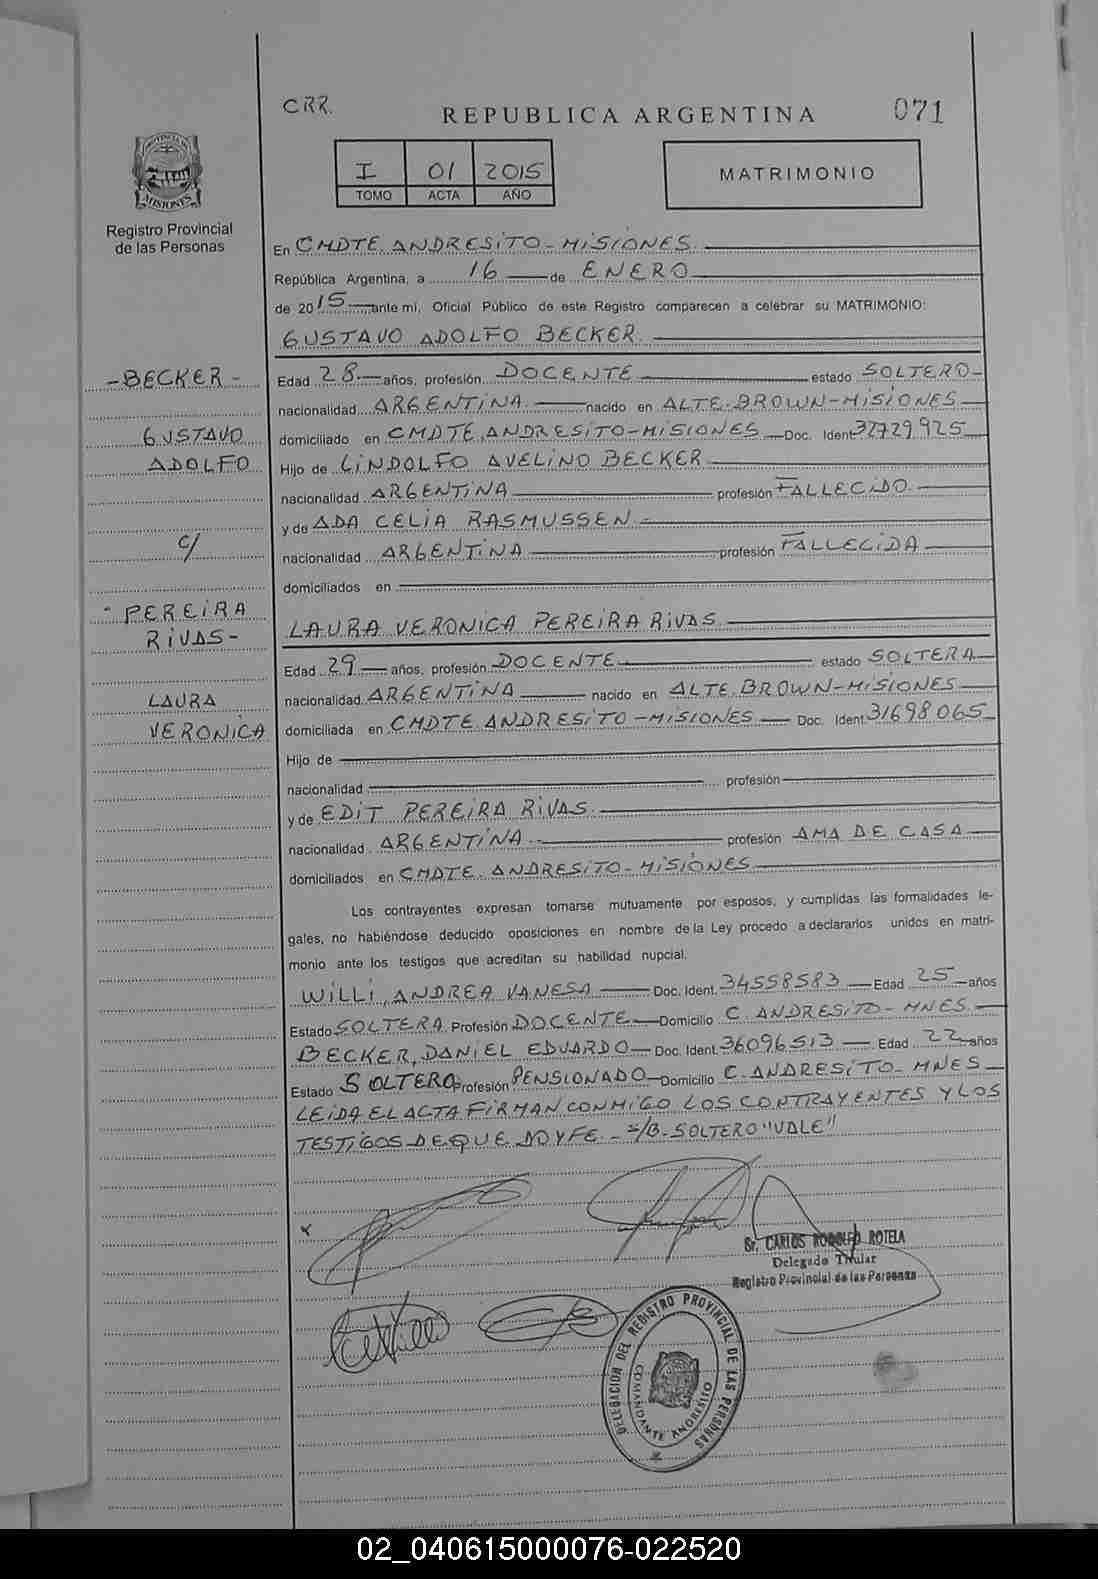 CRR.
REPUBLICA ARGENTINA
071
I 01 2015
TOMO ACTA AÑO
MATRIMONIO
PROVINCIA DE
MISIONES
Registro Provincial
de las Personas
En CMDTE. ANDRESITO - MISIONES.
República Argentina, a 16 de ENERO
de 2015 ante mí, Oficial Público de este Registro comparecen a celebrar su MATRIMONIO:
GUSTAVO ADOLFO BECKER.
- BECKER -
GUSTAVO
ADOLFO
c/
- PEREIRA
RIVAS -
LAURA
VERONICA
Edad 28 años, profesión DOCENTE estado SOLTERO
nacionalidad ARGENTINA nacido en ALTE. BROWN - MISIONES
domiciliado en CMDTE. ANDRESITO - MISIONES Doc. Ident. 32729925
Hijo de LINDOLFO AVELINO BECKER
nacionalidad ARGENTINA profesión FALLECIDO
y de ADA CELIA RASMUSSEN
nacionalidad ARGENTINA profesión FALLECIDA
domiciliados en
LAURA VERONICA PEREIRA RIVAS
Edad 29 años, profesión DOCENTE estado SOLTERA
nacionalidad ARGENTINA nacido en ALTE. BROWN - MISIONES
domiciliada en CMDTE. ANDRESITO - MISIONES Doc. Ident. 31698065
Hijo de
nacionalidad profesión
y de EDIT PEREIRA RIVAS
nacionalidad ARGENTINA profesión AMA DE CASA
domiciliados en CMDTE. ANDRESITO - MISIONES
Los contrayentes expresan tomarse mutuamente por esposos, y cumplidas las formalidades le-
gales, no habiéndose deducido oposiciones en nombre de la Ley procedo a declararlos unidos en matri-
monio ante los testigos que acreditan su habilidad nupcial.
WILLI, ANDREA VANESA Doc. Ident. 34558583 Edad 25 años
Estado SOLTERA Profesión DOCENTE Domicilio C. ANDRESITO - MNES.
BECKER, DANIEL EDUARDO Doc. Ident. 36096513 Edad 22 años
Estado SOLTERO Profesión PENSIONADO Domicilio C. ANDRESITO - MNES
LEIDA EL ACTA FIRMAN CONMIGO LOS CONTRAYENTES Y LOS
TESTIGOS DE QUE DOY FE. - S/B - SOLTERO "VALE"
Sr. CARLOS RODOLFO ROTELA
Delegado Titular
Registro Provincial de las Personas
DELEGACION DEL REGISTRO PROVINCIAL DE LAS PERSONAS
COMANDANTE ANDRESITO
02_040615000076-022520